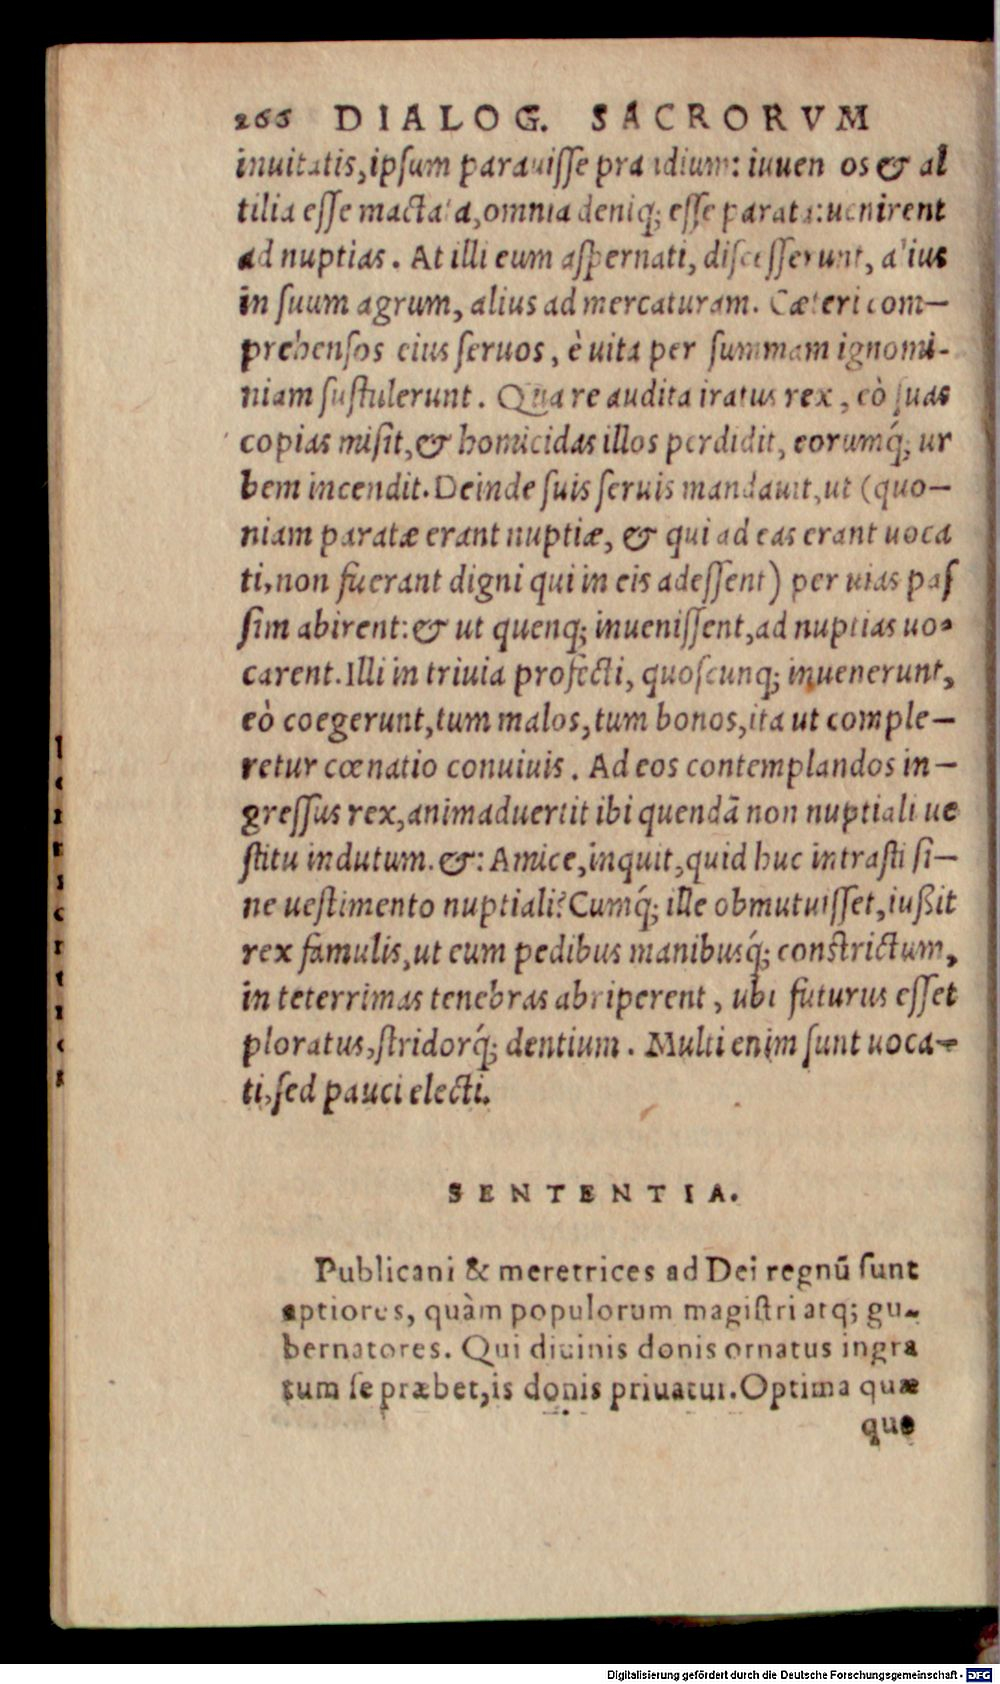 266 DIALOG. SACRORVM
inuitatis, ipſum parauiſſe prandium: iuuencos & al
tilia eſſe mactata, omnia deniq; eſſe parata: uenirent
ad nuptias. At illi eum aſpernati, diſceſſerunt, alius
in ſuum agrum, alius ad mercaturam. Cæteri com-
prehenſos eius ſeruos, è uita per ſummam ignomi-
niam ſuſtulerunt. Qua re audita iratus rex, eò ſuas
copias miſit, & homicidas illos perdidit, eorumq́; ur
bem incendit. Deinde ſuis ſeruis mandauit, ut (quo-
niam paratæ erant nuptiæ, & qui ad eas erant uoca
ti, non fuerant digni qui in eis adeſſent) per uias paſ
ſim abirent: & ut quenq; inueniſſent, ad nuptias uo-
carent. Illi in triuia profecti, quoſcunq; inuenerunt,
eò coegerunt, tum malos, tum bonos, ita ut comple-
retur cœnatio conuiuis. Ad eos contemplandos in-
greſſus rex, animaduertit ibi quendā non nuptiali ue
ſtitu indutum. &: Amice, inquit, quid huc intraſti ſi-
ne ueſtimento nuptiali? Cumq́; ille obmutuiſſet, iußit
rex famulis, ut eum pedibus manibusq́; conſtrictum,
in teterrimas tenebras abriperent, ubi futurus eſſet
ploratus, ſtridorq́; dentium. Multi enim ſunt uoca-
ti, ſed pauci electi.
SENTENTIA.
Publicani & meretrices ad Dei regnū ſunt
aptiores, quàm populorum magiſtri atq; gu-
bernatores. Qui diuinis donis ornatus ingra
tum ſe præbet, is donis priuatur. Optima quæ
que
Digitalisierung gefördert durch die Deutsche Forschungsgemeinschaft - DFG